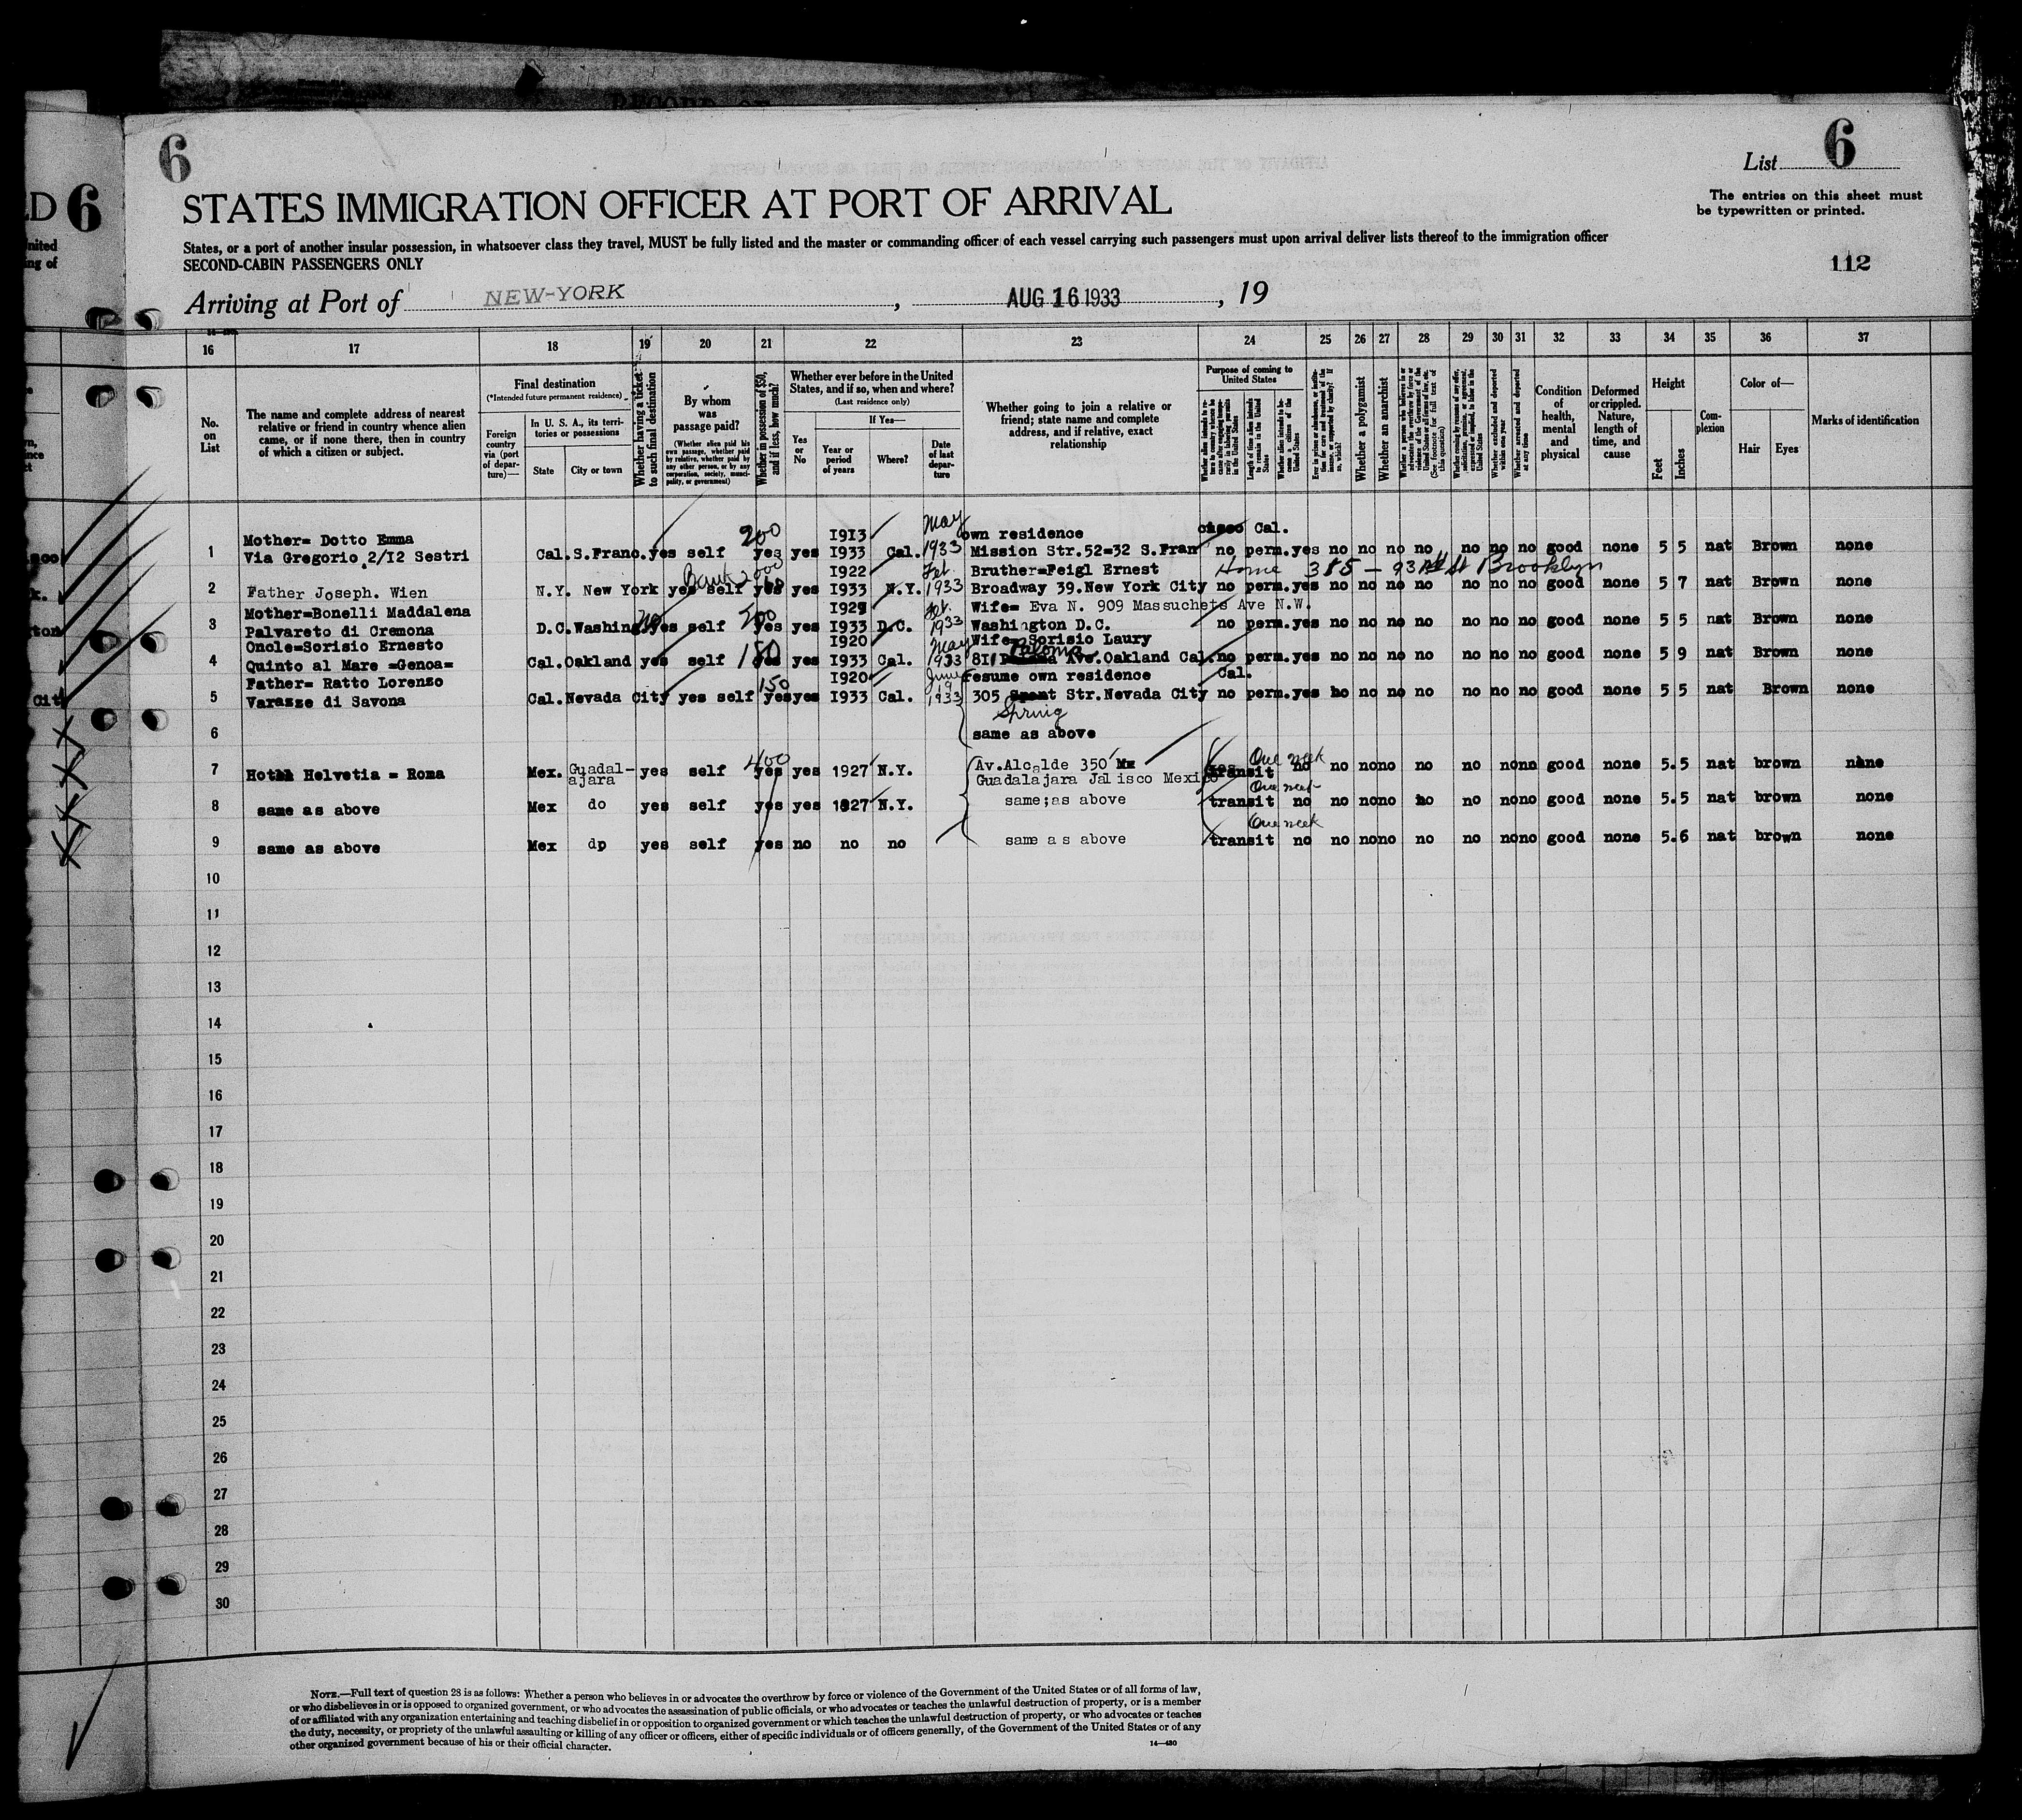 6
List 6
STATES IMMIGRATION OFFICER AT PORT OF ARRIVAL
The entries on this sheet must
be typewritten or printed.
D 6
States, or a port of another insular possession, in whatsoever class they travel, MUST be fully listed and the master or commanding officer of each vessel carrying such passengers must upon arrival deliver lists thereof to the immigration officer
SECOND-CABIN PASSENGERS ONLY
112
Arriving at Port of NEW-YORK, AUG 16 1933, 19
16 17 18 19 20 21 22 23 24 25 26 27 28 29 30 31 32 33 34 35 36 37
No. on List
The name and complete address of nearest
relative or friend in country whence alien
came, or if none there, then in country
of which a citizen or subject.
Final destination
(*Intended future permanent residence)
Foreign country via (port of departure)—
In U. S. A., its territories or possessions
State
City or town
Whether having a ticket to such final destination
By whom was passage paid?
(Whether alien paid his own passage, whether paid by relative, whether paid by any other person, or by any corporation, society, municipality, or government)
Whether in possession of $50, and if less, how much?
Whether ever before in the United States, and if so, when and where?
(Last residence only)
Yes or No
If Yes—
Year or period of years
Where?
Date of last departure
Whether going to join a relative or
friend; state name and complete
address, and if relative, exact
relationship
Purpose of coming to United States
Whether alien intends to return to country whence he came after engaging temporarily in laboring pursuits in the United States
Length of time alien intends to remain in the United States
Whether alien intends to become a citizen of the United States
Ever in prison or almshouse, or institution for care and treatment of the insane, or supported by charity? If so, which?
Whether a polygamist
Whether an anarchist
(See footnote for full text of this question)
Whether excluded and deported within one year
Whether arrested and deported at any time
Condition of health, mental and physical
Deformed or crippled. Nature, length of time, and cause
Height
Feet
Inches
Complexion
Color of—
Hair
Eyes
Marks of identification
Mother= Dotto Emma 200 I9I3 May own residence Cal.
1 Via Gregorio 2/I2 Sestri Cal. S.Franc. yes self yes yes I933 Cal. 1933 Mission Str.52=32 S.Fran no perm. yes no no no no no no no good none 5 5 nat Brown none
Bank 2000 I922 Feb. Bruther=Feigl Ernest Home 385 - 93rd St Brooklyn
2 Father Joseph. Wien N.Y. New York yes self yes yes I933 N.Y. 1933 Broadway 39.New York City no perm. yes no no no no no no no good none 5 7 nat Brown none
Mother=Bonelli Maddalena no 500 Wife= Eva N. 909 Massuchets Ave N.W.
3 Palvareto di Cremona D.C. Washing. yes self yes yes I933 D.C. 1933 Washington D.C. no perm. yes no no no no no no no good none 5 5 nat Brown none
Oncle=Sorisio Ernesto 150 I920 May Wife= Sorisio Laury
4 Quinto al Mare =Genoa= Cal. Oakland yes self yes yes I933 Cal. 1933 8I Paloma Ave.Oakland Cal. no perm. yes no no no no no no no good none 5 9 nat Brown none
Father= Ratto Lorenzo 150 I920 June resume own residence Cal.
5 Varazze di Savona Cal. Nevada City yes self yes yes I933 Cal. 19 1933 305 Str.Nevada City no perm. yes no no no no no no no good none 5 5 nat Brown none
Spring
6 same as above
7 Hotel Helvetia = Roma Mex. Guadal-
ajara yes self 400 yes yes 1927 N.Y. Av.Alcalde 350
Guadalajara Jalisco Mexico transit One week no no no no no no no no good none 5.5 nat brown none
8 same as above Mex do yes self yes yes 1927 N.Y. same;as above transit One week no no no no no no no no good none 5.5 nat brown none
9 same as above Mex dp yes self yes no no no same as above transit One week no no no no no no no no good none 5.6 nat brown none
10
11
12
13
14
15
16
17
18
19
20
21
22
23
24
25
26
27
28
29
30
NOTE.—Full text of question 28 is as follows: Whether a person who believes in or advocates the overthrow by force or violence of the Government of the United States or of all forms of law,
or who disbelieves in or is opposed to organized government, or who advocates the assassination of public officials, or who advocates or teaches the unlawful destruction of property, or is a member
of or affiliated with any organization entertaining and teaching disbelief in or opposition to organized government or which teaches the unlawful destruction of property, or who advocates or teaches
the duty, necessity, or propriety of the unlawful assaulting or killing of any officer or officers, either of specific individuals or of officers generally, of the Government of the United States or of any
other organized government because of his or their official character.
14—430